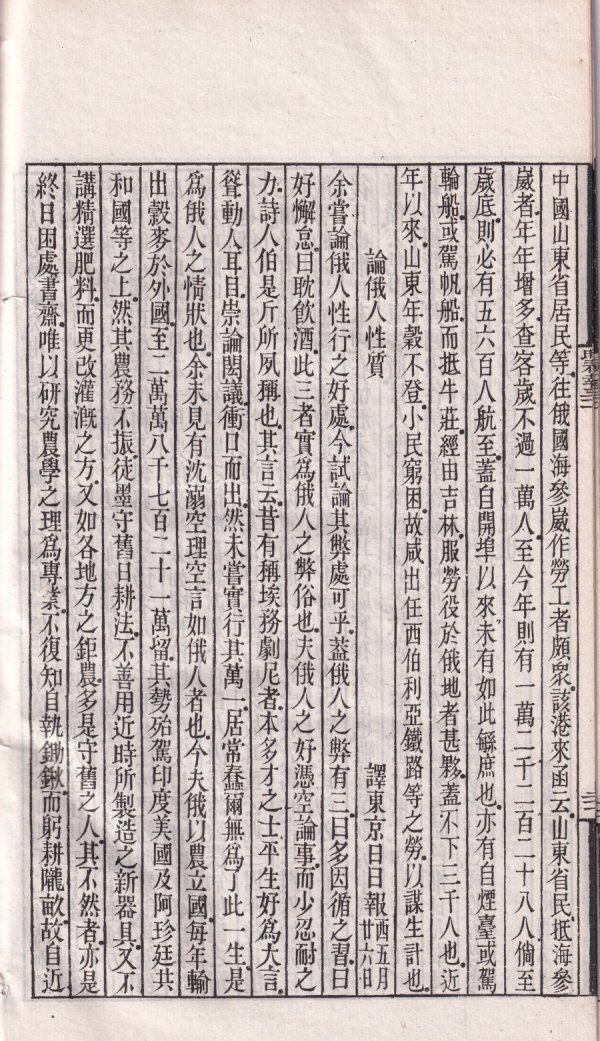 中國山東省居民等。往俄國海參崴作勞工者頗衆。該港來函云。山東省民。抵海參
崴者。年年增多。查客歲不過一萬人。至今年則有一萬二千二百二十八人。倘至
歲底。則必有五六百人航至。蓋自開埠以來。未有如此緐庶也。亦有自煙臺或駕
輪船。或駕帆船。而抵牛莊。經由吉林。服勞役於俄地者甚夥。蓋不下三千人也。近
年以來。山東年穀不登。小民窮困。故咸出任西伯利亞鐵路等之勞。以謀生計也。
論俄人性質 譯東京日日報 西五月廿六日
余嘗論俄人性行之好處。今試論其弊處可乎。蓋俄人之弊有三。曰多因循之習。曰
好懈怠。曰耽飲酒。此三者實爲俄人之弊俗也。夫俄人之好憑空論事。而少忍耐之
力。詩人伯是斤所夙稱也。其言云。昔有稱埃務劇尼者。本多才之士。平生好爲大言。
聳動人耳目。崇論閎議。衝口而出。然未嘗實行其萬一。居常蠢爾無爲。了此一生。是
爲俄人之情狀也。余未見有沈溺空理空言如俄人者也。今夫俄以農立國。每年輸
出穀麥於外國。至二萬萬八千七百二十一萬留。其勢殆駕印度美國及阿珍廷共
和國等之上。然其農務不振。徒墨守舊日耕法。不善用近時所製造之新器具。又不
講精選肥料。而更改灌漑之方。又如各地方之鉅農。多是守舊之人。其不然者。亦是
終日困處書齋。唯以硏究農學之理爲專業。不復知自執鋤鍬。而躬耕隴畝。故自近